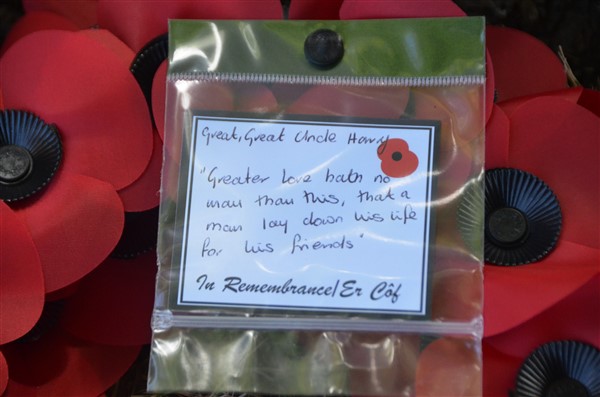 Great, Great Uncle Harry
"Greater love hath no
man than this, that a
man lay down his life
for his friends"
In Remembrance/Er Côf